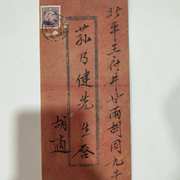 北平王府井甘雨胡同九号
孫乃健先生啓
胡適